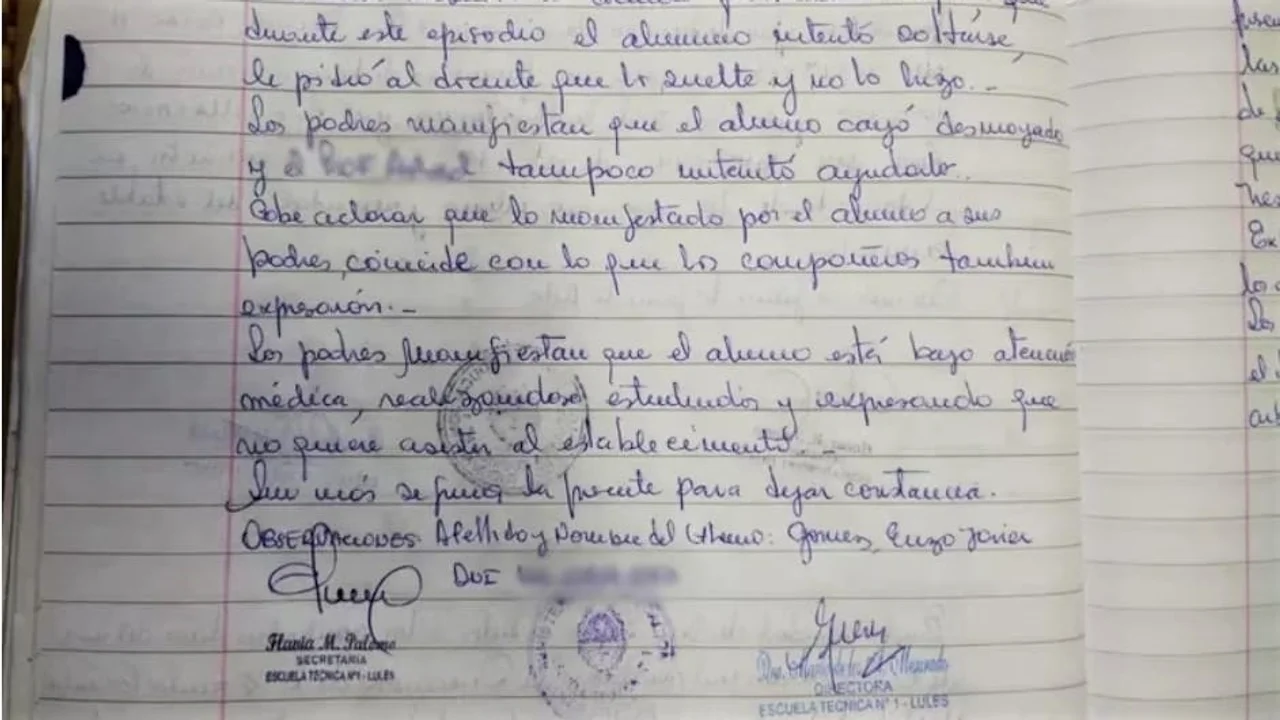 durante este episodio el alumno intentó soltarse,
le pidió al docente que lo suelte y no lo hizo.-
Los padres manifiestan que el alumno cayó desmayado
y el tampoco intentó ayudarlo..
Cabe aclarar que lo manifestado por el alumno a sus
padres, coincide con lo que los compañeros también
expresarón.-
Los padres manifiestan que el alumno está bajo atención
médica, realizandose estudios y expresando que
no quiere asistir al establecimiento.-
Sin más se firma la presente para dejar constancia.
OBSERVACIONES: Apellido y Nombre del Alumno: Gomez, Enzo Javier
Flavia M. Palomo
SECRETARIA
ESCUELA TECNICA Nº1 - LULES
DIRECTORA
ESCUELA TECNICA Nº 1 - LULES